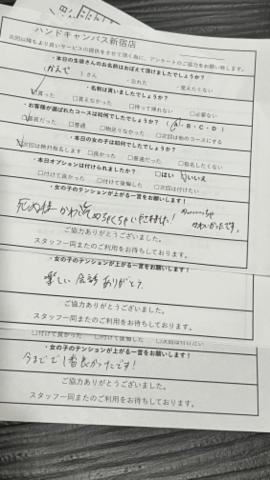 ハンドキャンパス新宿店
・本日の生徒さんのお名前はおぼえて頂けましたでしょうか？
(かえで)さん ・忘れた ・覚えたくない
・名前は買いましたでしょうか？
□言えなかった □待って帰れない □必要ない
・お客様が選ばれたコースは如何でしたでしょうか？ (A・B・C・D)
□普通 □物足りなかった □次回は他のコースにする
・本日の女の子は如何でしたでしょうか？
□次回は絶対指名します □良かった □普通だった □指名したくない
・本日オプションは付けられましたか？ □はい □いいえ
□付けて良かった □付けて後悔した □次回は付けたい
・女の子のテンションが上がる一言をお願いします！
かわいかったです。
ご協力ありがとうございました。
スタッフ一同またのご利用をお待ちしております。
・女の子のテンションが上がる一言をお願いします！
楽しい会話ありがとう。
ご協力ありがとうございました。
スタッフ一同またのご利用をお待ちしております。
□付けて良かった □付けて後悔した □次回は付けたい
・女の子のテンションが上がる一言をお願いします！
今までで1番良かったです！
ご協力ありがとうございました。
スタッフ一同またのご利用をお待ちしております。